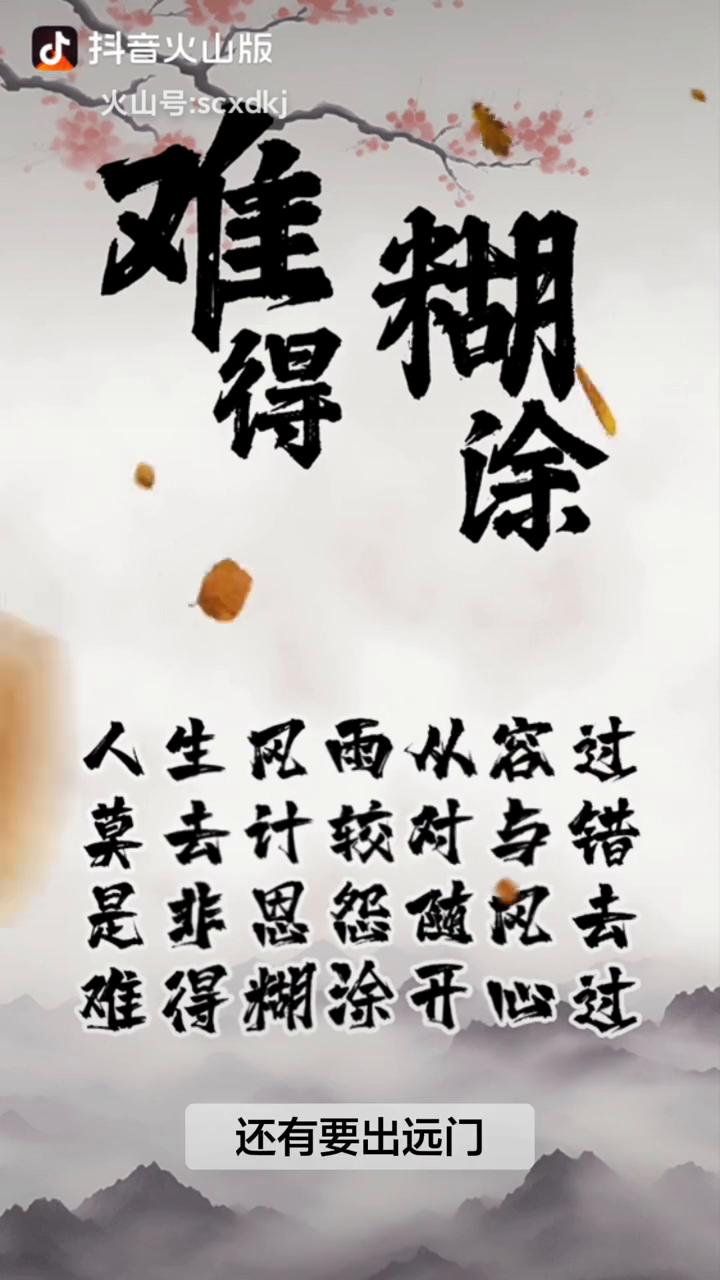 抖音火山版
火山号:scxdkj
难得
糊涂
人生风雨从容过
莫去计较对与错
是非恩怨随风去
难得糊涂开心过
还有要出远门